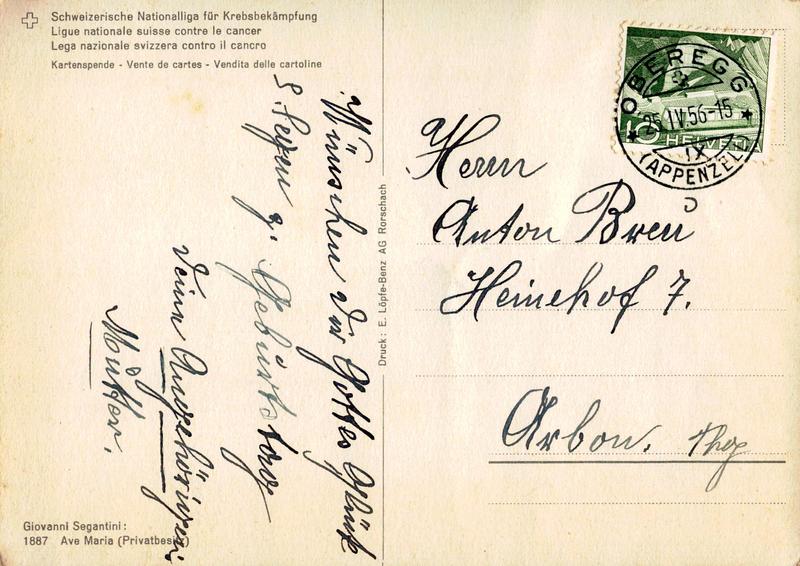 Schweizerische Nationalliga für Krebsbekämpfung
Ligue nationale suisse contre le cancer
Lega nazionale svizzera contro il cancro
Kartenspende - Vente de cartes - Vendita delle cartoline
Wünschen dir Gottes Glück
& Segen z. Geburtstag
Deine Angehörigen
Mutter.
Giovanni Segantini:
1887 Ave Maria (Privatbesitz)
Druck: E. Löpfe-Benz AG Rorschach
OBEREGG
25.IV.56-15
IX
(APPENZELL)
5
HELVETIA
Herrn
Anton Breu
Heinehof 7.
Arbon. Thg